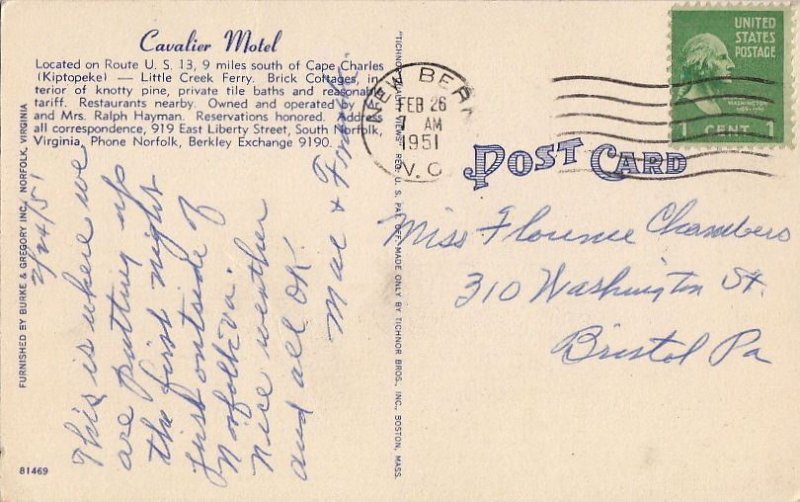 Cavalier Motel
Located on Route U. S. 13, 9 miles south of Cape Charles
(Kiptopeke) — Little Creek Ferry. Brick Cottages, in-
terior of knotty pine, private tile baths and reasonable
tariff. Restaurants nearby. Owned and operated by
and Mrs. Ralph Hayman. Reservations honored. Address
all correspondence, 919 East Liberty Street, South Norfolk,
Virginia, Phone Norfolk, Berkley Exchange 9190.
FURNISHED BY BURKE & GREGORY INC., NORFOLK, VIRGINIA
2/24/51
This is where we
are putting up
the first night
just outside of
Norfolk Va.
Nice weather
and all OK.
Mae &
81469
MADE ONLY BY TICHNOR BROS., INC., BOSTON, MASS.
NEW BERN
FEB 26
AM
1951
N. C.
UNITED
STATES
POSTAGE
WASHINGTON
1 CENT 1
POST CARD
Miss Florence Chambers
310 Washington St.
Bristol Pa